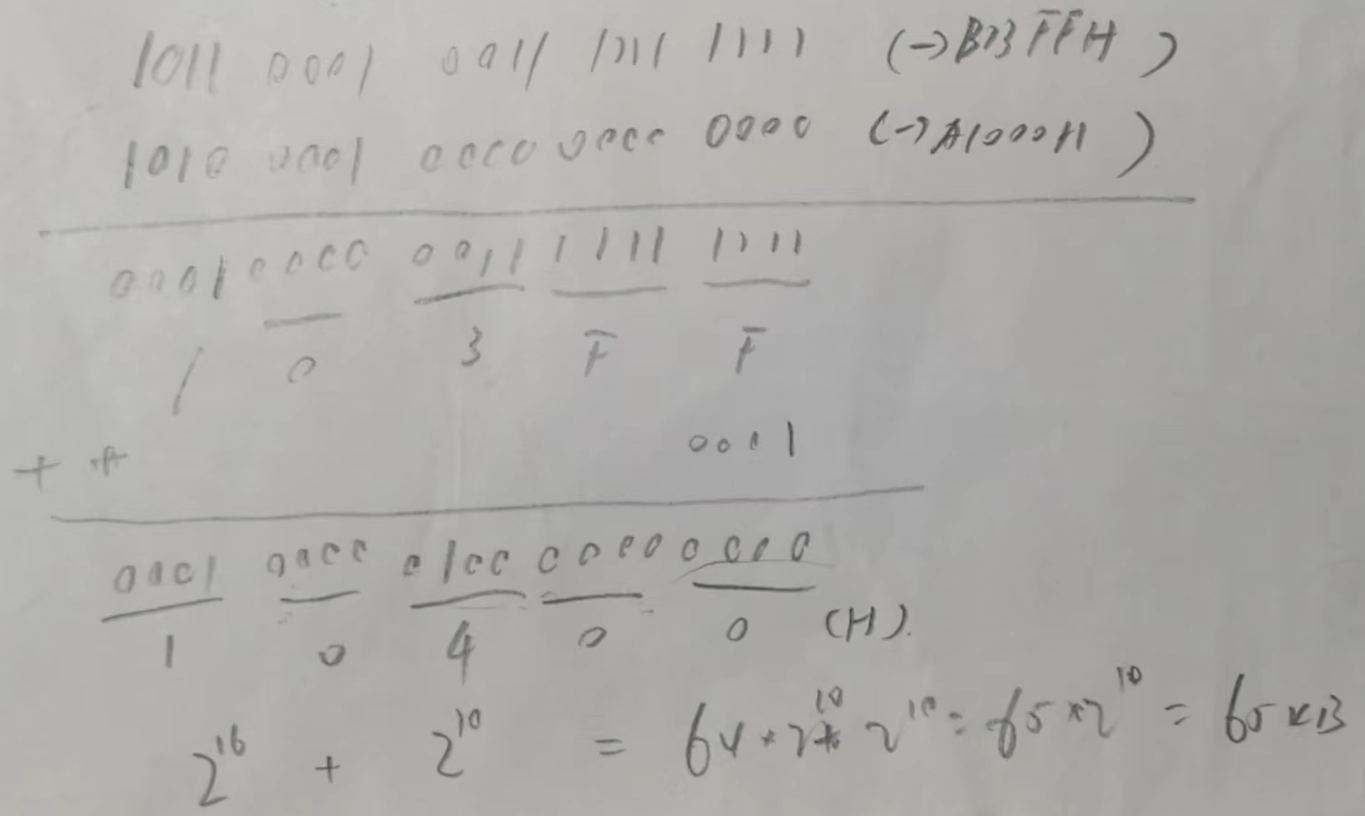 1011 0001 0011 1111 1111 (→B13FFH)
1010 0001 0000 0000 0000 (→A1000H)
0001 0000 0011 1111 1111
1 0 3 F F
0001
+ +
0001 0000 0100 0000 0000
1 0 4 0 0 (H).
2^16 + 2^10 = 64*2^10+ 2^10 = 65*2^10 = 65KB